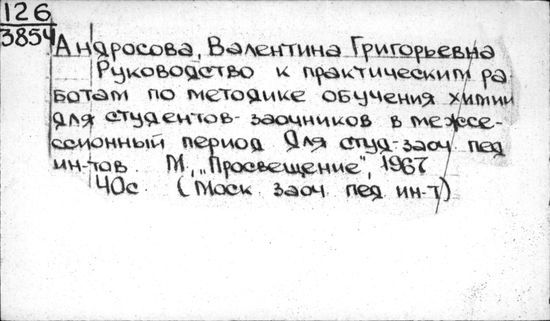 126
3854
Андросова, Валентина Григорьевна
Руководство к практическим ра-
ботам по методике обучения химии
для студентов-заочников в межсе-
ссионный период Для студ-заоч. пед
ин-тов. М., "Просвещение", 1967
40с. (Моск. заоч. пед ин-т)